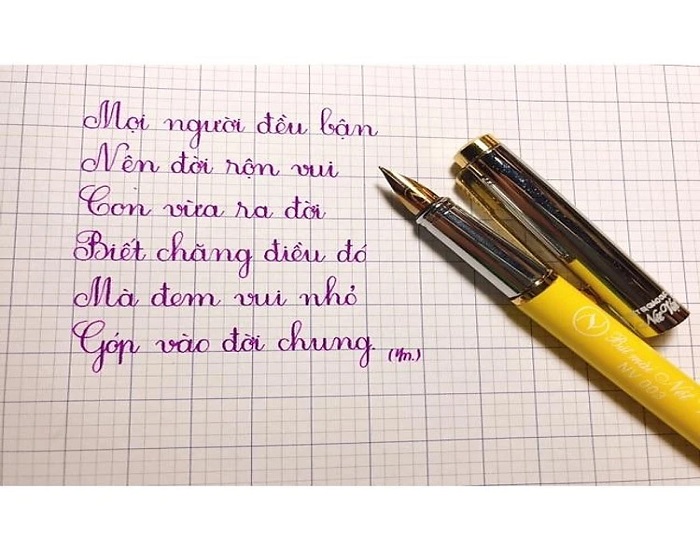 Mọi người đều bận
Nên đời rộn vui
Con vừa ra đời
Biết chăng điều đó
Mà đem vui nhỏ
Góp vào đời chung.
Nét Việt
Bút mài Nét
NV 003